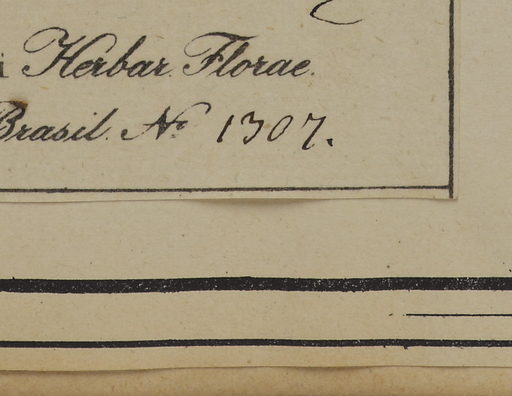 i Herbar. Florae.
Brasil. No 1307.